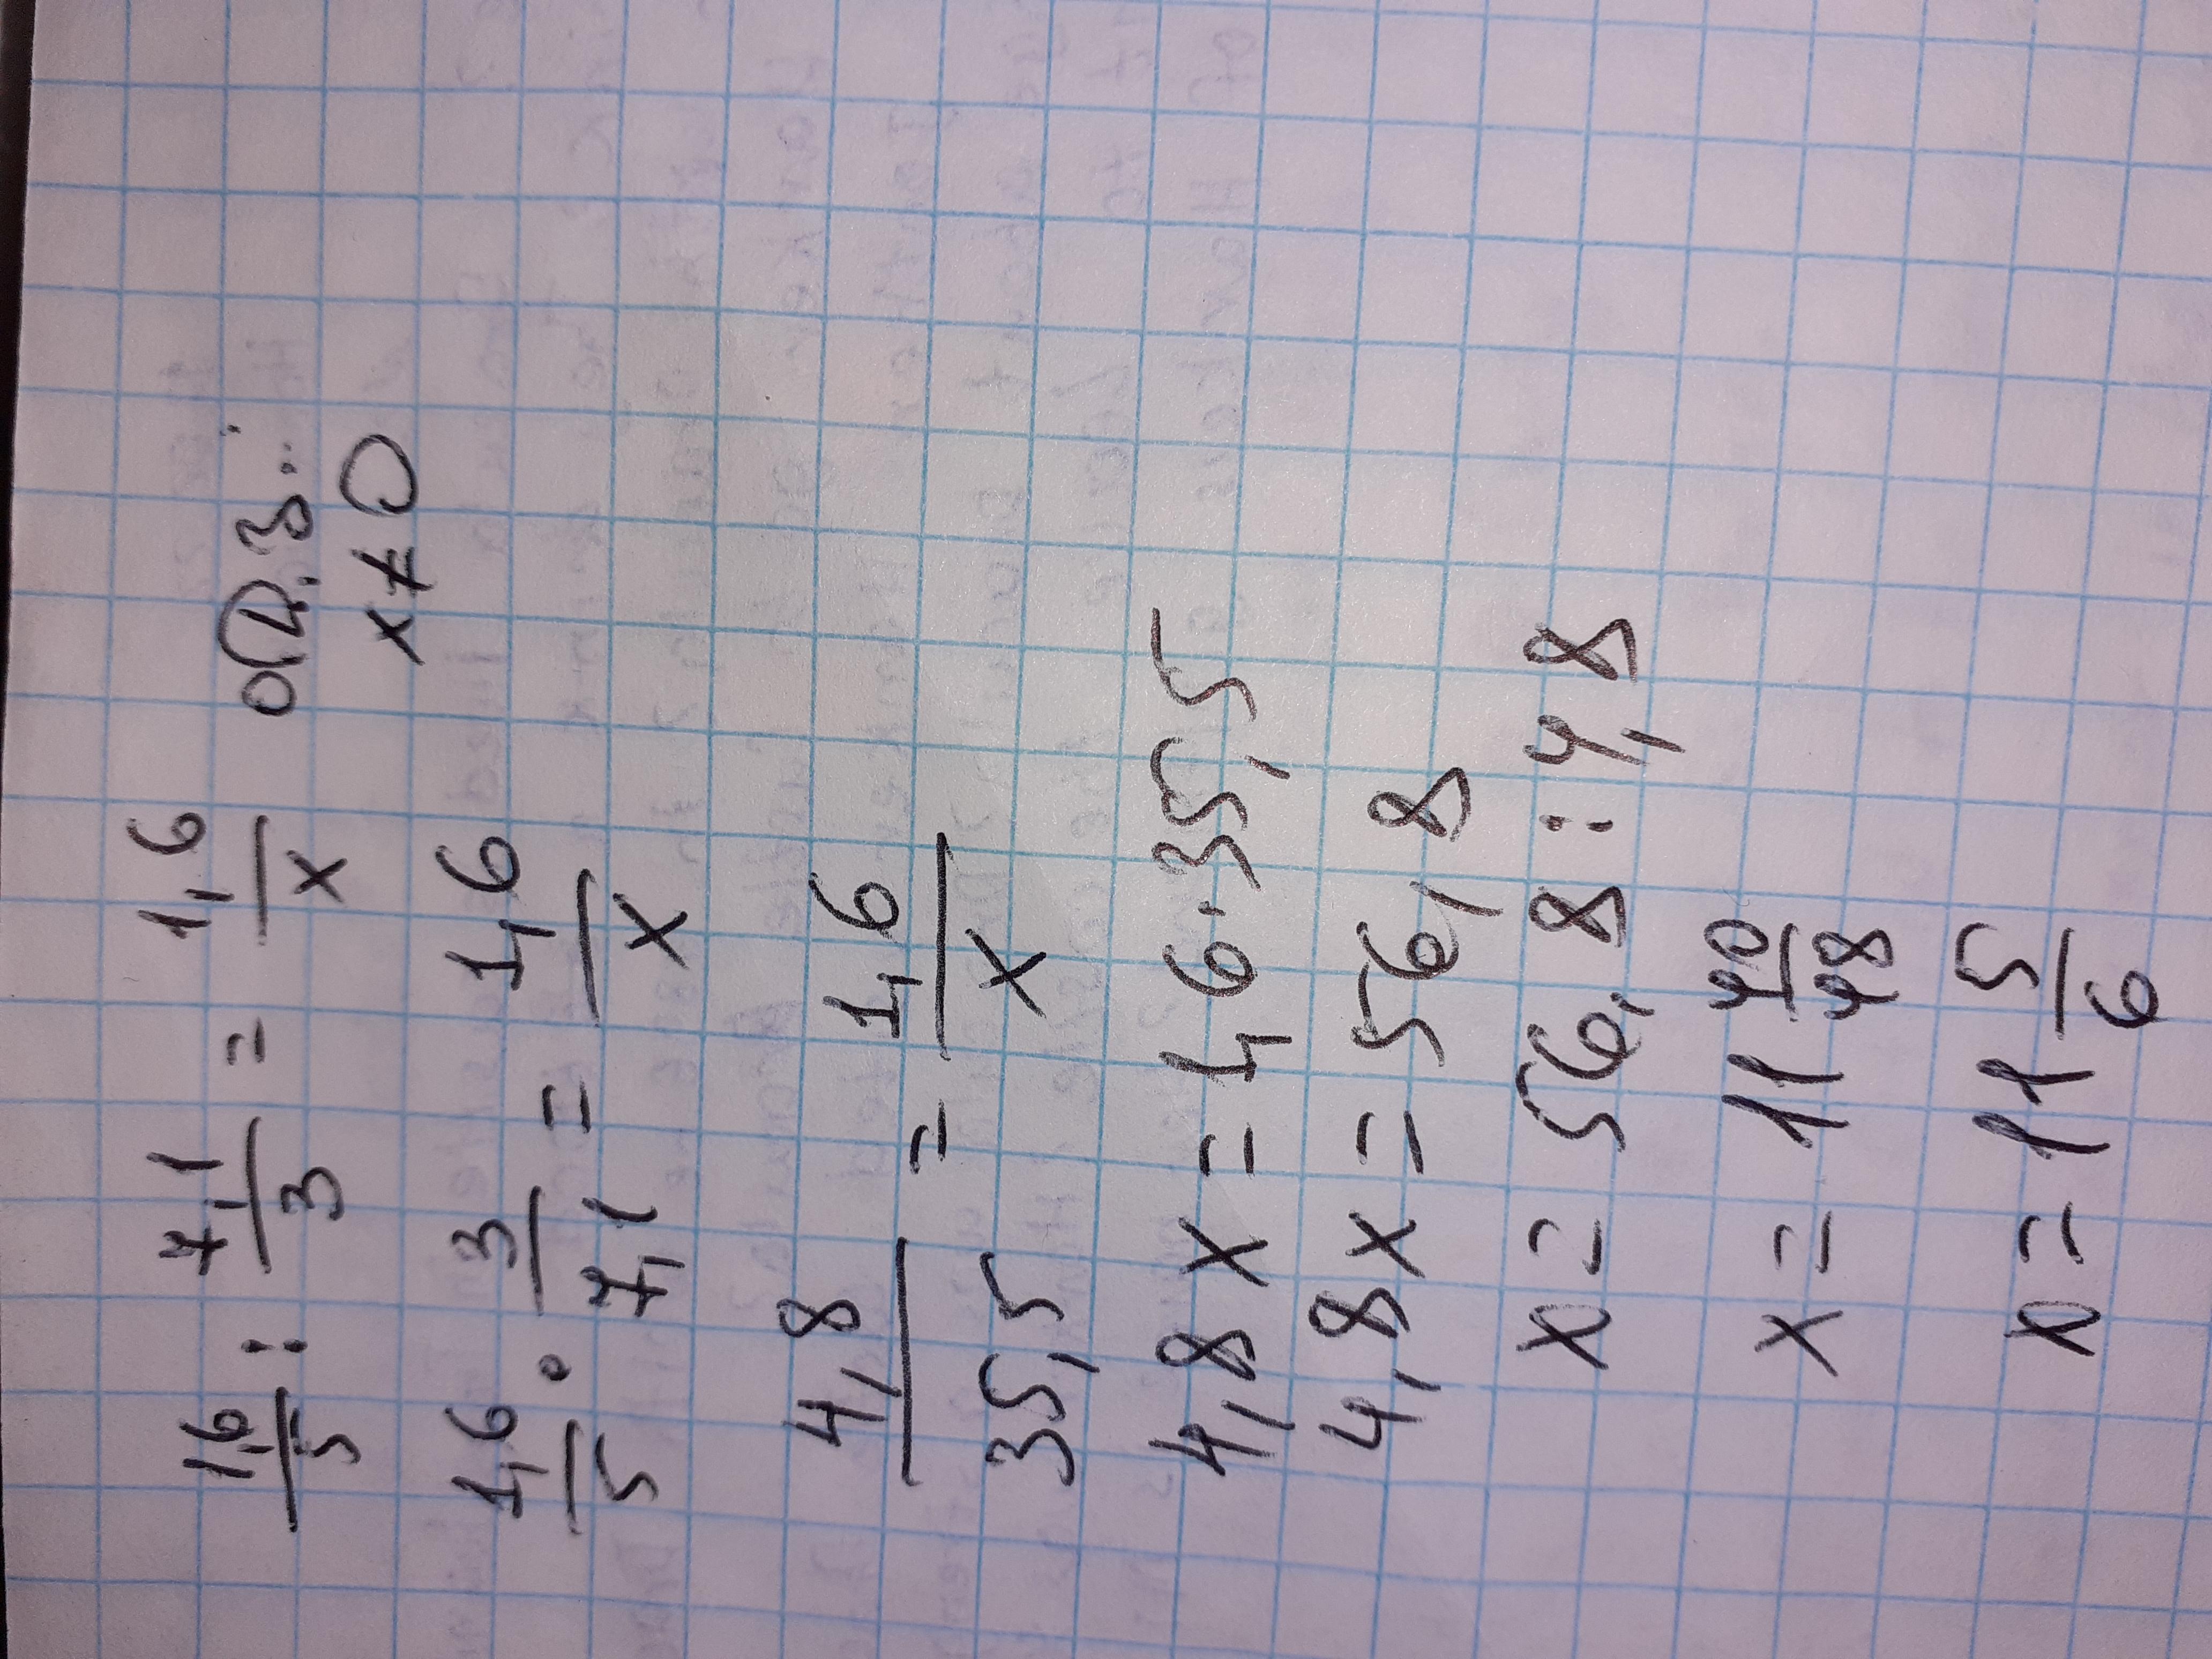 1,6/5 : 7,1/3 = 1,6/x О.Д.З.:
x≠0
1,6/5 · 3/7,1 = 1,6/x
4,8/35,5 = 1,6/x
4,8x = 1,6·35,5
4,8x = 56,8
x = 56,8:4,8
x = 11 40/48
x = 11 5/6